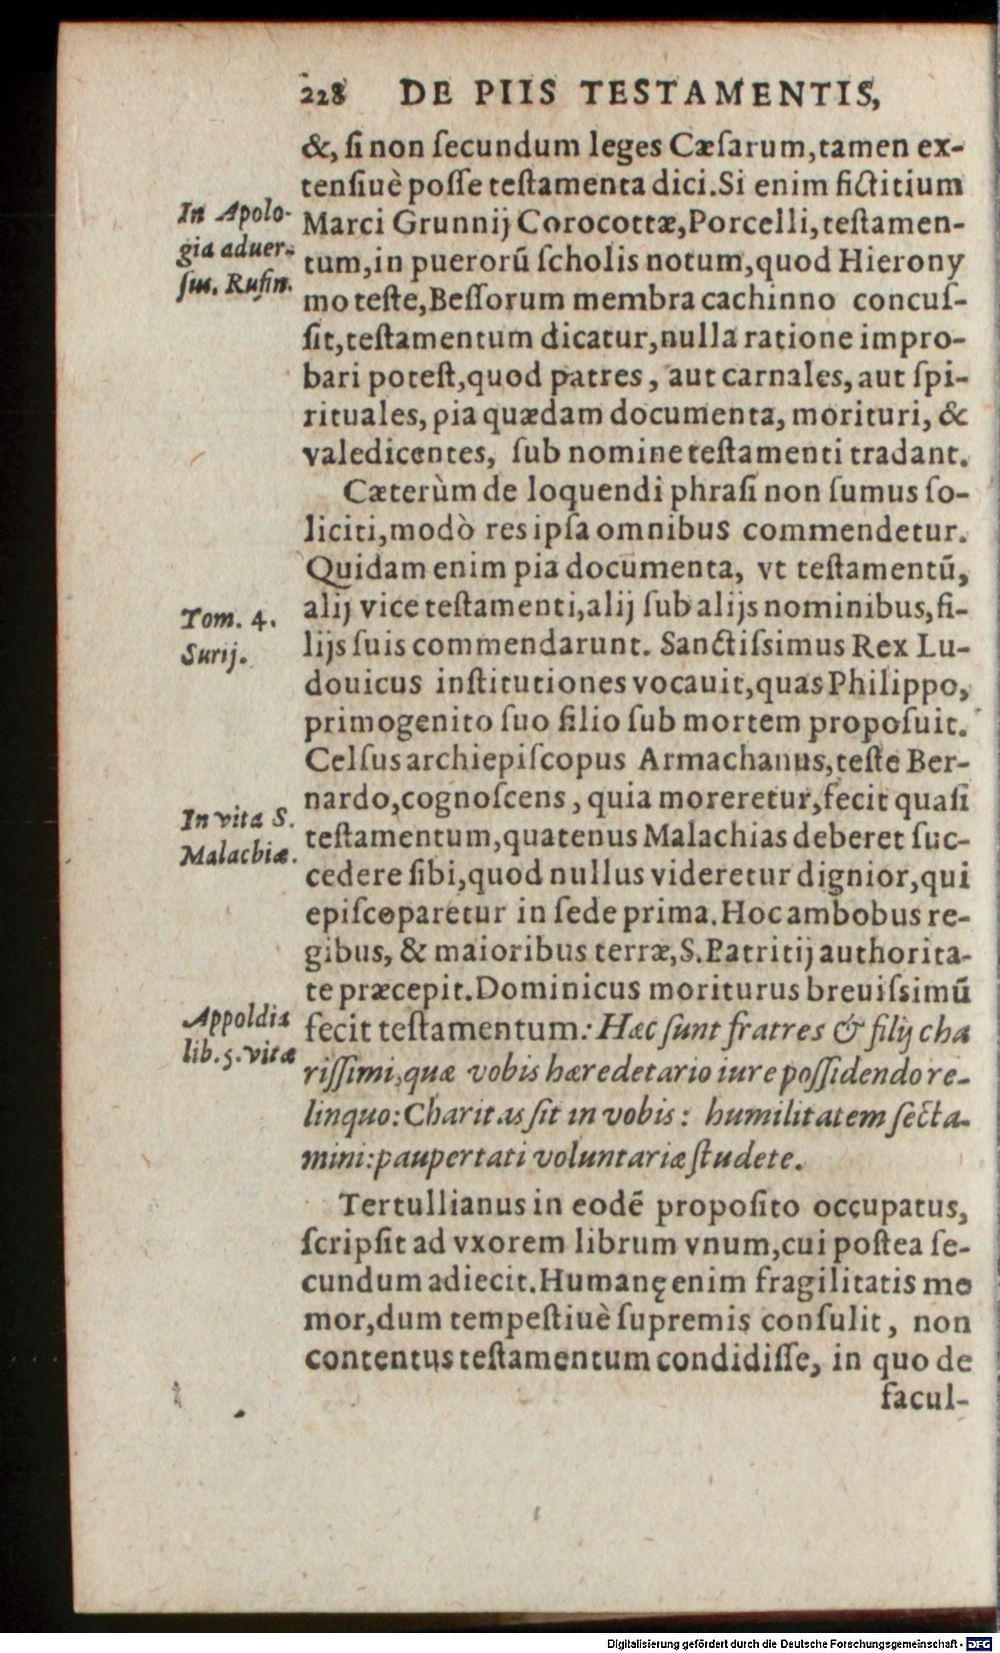 228 DE PIIS TESTAMENTIS,
&, ſi non ſecundum leges Cæſarum, tamen ex-
tenſiuè poſſe teſtamenta dici. Si enim fictitium
In Apolo-
gia aduer-
ſus. Rufin.
Marci Grunnij Corocottæ, Porcelli, teſtamen-
tum, in puerorū ſcholis notum, quod Hierony
mo teſte, Beſſorum membra cachinno concuſ-
ſit, teſtamentum dicatur, nulla ratione impro-
bari poteſt, quod patres, aut carnales, aut ſpi-
rituales, pia quædam documenta, morituri, &
valedicentes, ſub nomine teſtamenti tradant.
Cæterùm de loquendi phraſi non ſumus ſo-
liciti, modò res ipſa omnibus commendetur.
Quidam enim pia documenta, vt teſtamentū,
alij vice teſtamenti, alij ſub alijs nominibus, fi-
Tom. 4.
Surij.
lijs ſuis commendarunt. Sanctiſsimus Rex Lu-
douicus inſtitutiones vocauit, quas Philippo,
primogenito ſuo filio ſub mortem propoſuit.
Celſus archiepiſcopus Armachanus, teſte Ber-
nardo, cognoſcens, quia moreretur, fecit quaſi
In vita S.
Malachiæ.
teſtamentum, quatenus Malachias deberet ſuc-
cedere ſibi, quod nullus videretur dignior, qui
epiſcoparetur in ſede prima. Hoc ambobus re-
gibus, & maioribus terræ, S. Patritij authorita-
te præcepit. Dominicus moriturus breuiſsimū
Appoldia
lib. 5. vitæ
fecit teſtamentum: Hæc ſunt fratres & filij cha
riſſimi, quæ vobis hæredetario iure poſſidendo re-
linquo: Charitas ſit in vobis: humilitatem ſecta-
mini: paupertati voluntariæ ſtudete.
Tertullianus in eodē propoſito occupatus,
ſcripſit ad vxorem librum vnum, cui poſtea ſe-
cundum adiecit. Humanę enim fragilitatis me
mor, dum tempeſtiuè ſupremis conſulit, non
contentus teſtamentum condidiſſe, in quo de
facul-
Digitalisierung gefördert durch die Deutsche Forschungsgemeinschaft - DFG